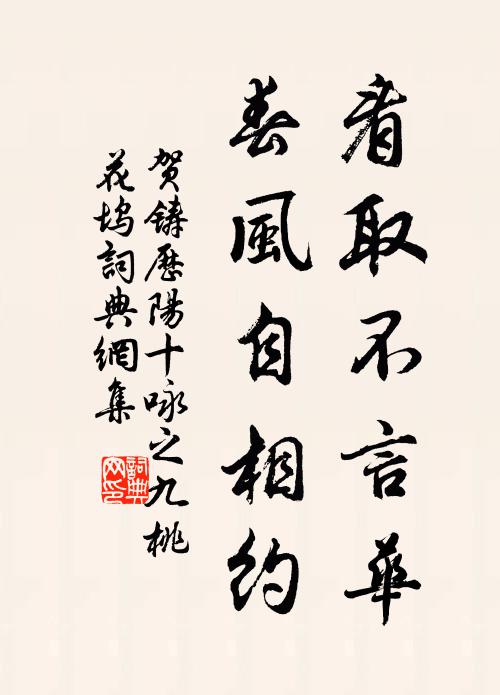 看取不言華
春風自相約
贺鑄歷陽十咏之九桃
花塢詞典網集
詞典
网印